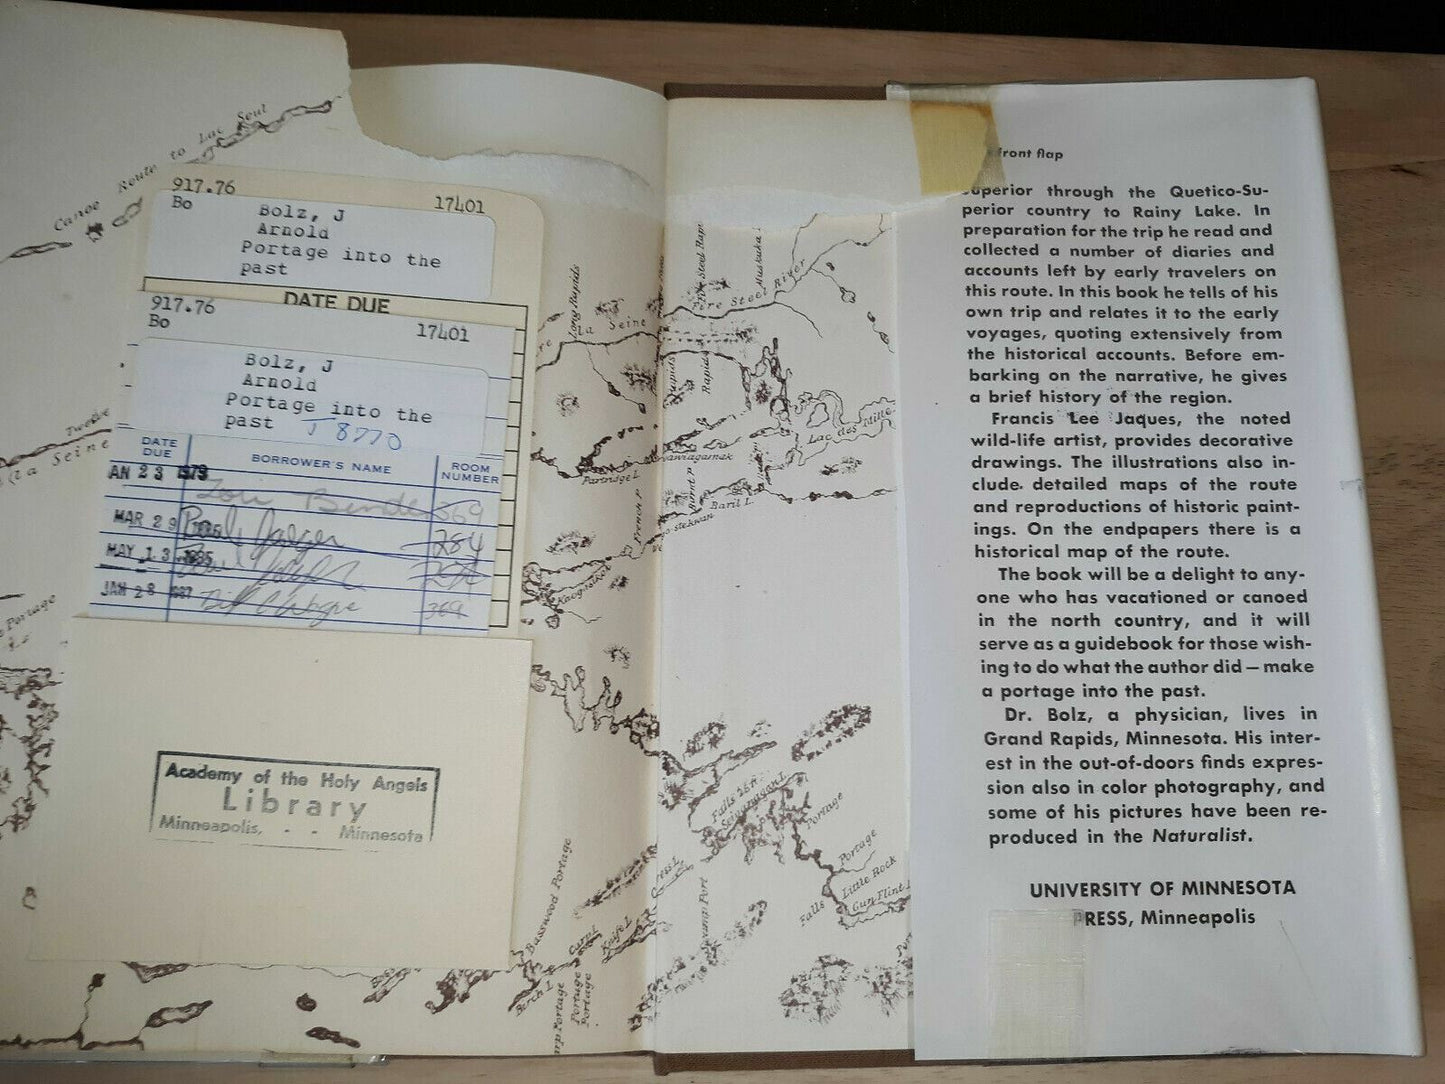 Canoe Route to Lac Seul
917.76
Bo
17401
Bolz, J
Arnold
Portage into the
past
DATE DUE
917.76
Bo
17401
Bolz, J
Arnold
Portage into the
past
J 8770
DATE
DUE
BORROWER'S NAME
ROOM
NUMBER
AN 23 1979
369
MAR 29
284
MAY 13
JAN 28
369
Academy of the Holy Angels
Library
Minneapolis, - - Minnesota
Twelve
la Seine
Portage
Long Rapids
La Seine
Steel River
Rapids
Rapids
Lac des Mille
Partridge L
Baril L.
French P.
Burnt P
Falls 25 ft.
Portage
Portage
Little Rock
Falls
Gun Flint L
Swamp Port
Basswood Portage
Carp L
Knife L
Birch L
Portage
Portage
Portage
front flap
Superior through the Quetico-Su-
perior country to Rainy Lake. In
preparation for the trip he read and
collected a number of diaries and
accounts left by early travelers on
this route. In this book he tells of his
own trip and relates it to the early
voyages, quoting extensively from
the historical accounts. Before em-
barking on the narrative, he gives
a brief history of the region.
Francis Lee Jaques, the noted
wild-life artist, provides decorative
drawings. The illustrations also in-
clude detailed maps of the route
and reproductions of historic paint-
ings. On the endpapers there is a
historical map of the route.
The book will be a delight to any-
one who has vacationed or canoed
in the north country, and it will
serve as a guidebook for those wish-
ing to do what the author did — make
a portage into the past.
Dr. Bolz, a physician, lives in
Grand Rapids, Minnesota. His inter-
est in the out-of-doors finds expres-
sion also in color photography, and
some of his pictures have been re-
produced in the Naturalist.
UNIVERSITY OF MINNESOTA
PRESS, Minneapolis